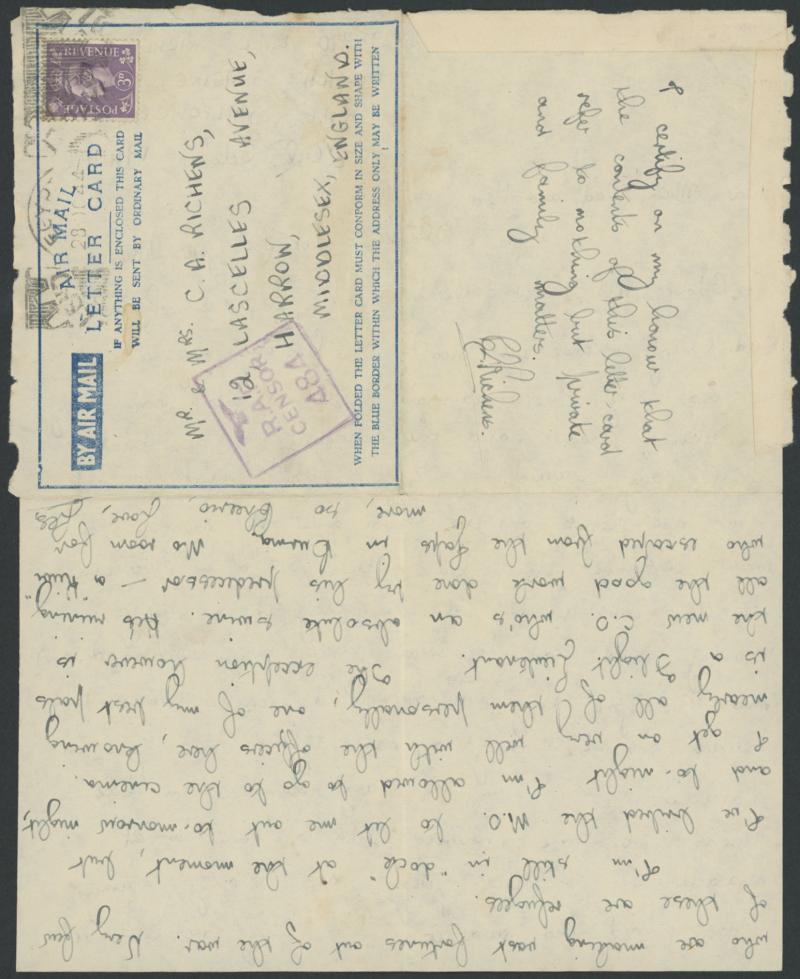 REVENUE
POSTAGE
3D
AIR MAIL
LETTER CARD
IF ANYTHING IS ENCLOSED THIS CARD
WILL BE SENT BY ORDINARY MAIL
BY AIR MAIL
MR. & MRS. C. A. RICHENS,
12 LASCELLES AVENUE,
HARROW,
MIDDLESEX, ENGLAND.
R.A.F.
CENSOR
484
WHEN FOLDED THE LETTER CARD MUST CONFORM IN SIZE AND SHAPE WITH
THE BLUE BORDER WITHIN WHICH THE ADDRESS ONLY MAY BE WRITTEN
I certify on my honour that
the contents of this letter-card
refer to nothing but private
and family matters.
Richens.
who are making vast fortunes out of the war. Very few
of these are refugees.
I'm still in "dock" at the moment, but
I've bribed the M.O. to let me out to-morrow night,
and to-night I'm allowed to go to the cinema.
I get on very well with the officers here, knowing
nearly all of them personally, one of my best pals
is a Flight Lieutenant. The exception however is
the new C.O. who's an absolute swine. He's ruining
all the good work done by his predecessor — a
who escaped from the Japs in Burma. No room for
more, so Cheerio, Love, Les.